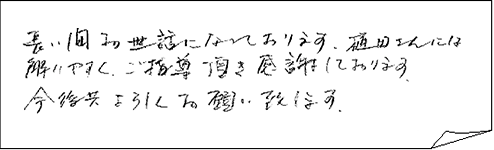 長い間お世話になっております。植田さんには
解りやすく、ご指導頂き感謝しております。
今後共よろしくお願い致します。